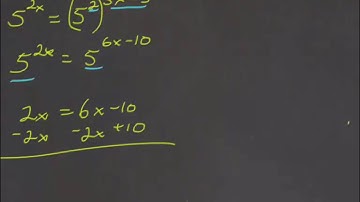 5^{2x} = (5^2)^{3x-5}
5^{2x} = 5^{6x-10}
2x = 6x-10
-2x -2x +10